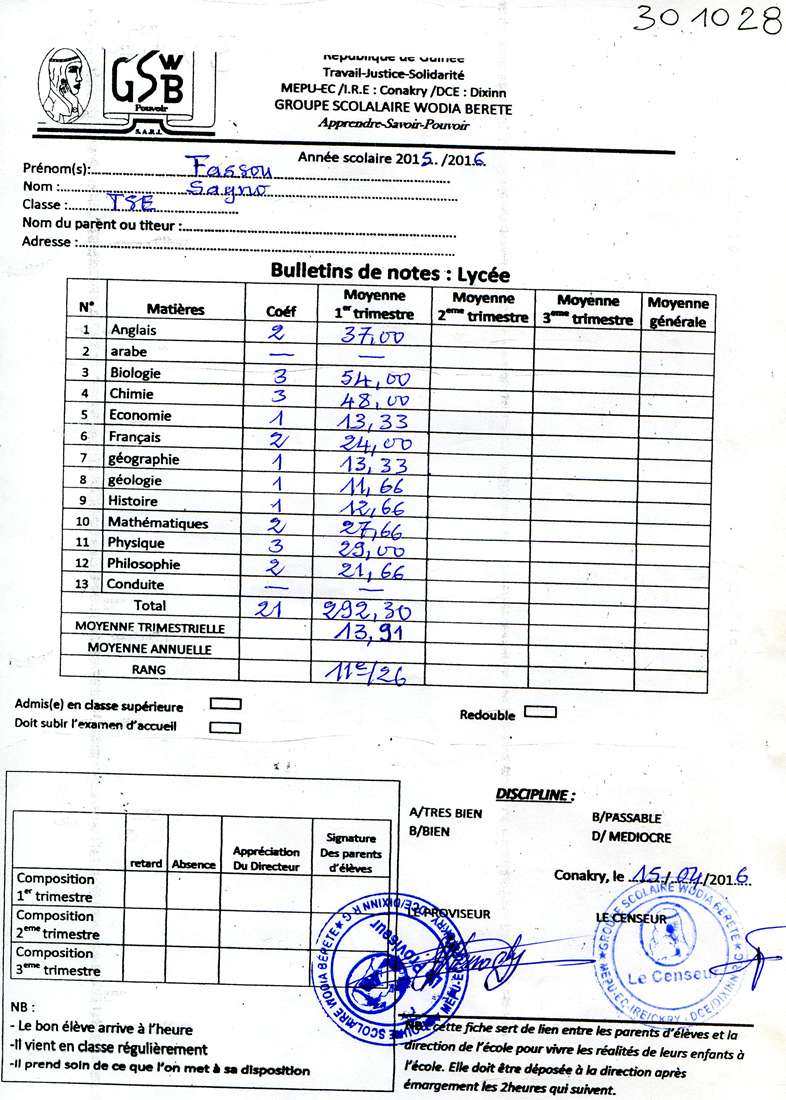 301028
GSWB
Pouvoir
S.A.R.L
République de Guinée
Travail-Justice-Solidarité
MEPU-EC /I.R.E : Conakry /DCE : Dixinn
GROUPE SCOLALAIRE WODIA BERETE
Apprendre-Savoir-Pouvoir
Année scolaire 2015../2016..
Prénom(s):......Fassou......
Nom :......Sagno......
Classe :......TSE......
Nom du parent ou titeur :......
Adresse :......
Bulletins de notes : Lycée
N° Matières Coéf Moyenne 1er trimestre Moyenne 2eme trimestre Moyenne 3eme trimestre Moyenne générale
1 Anglais 2 37,00
2 arabe — —
3 Biologie 3 54,00
4 Chimie 3 48,00
5 Economie 1 13,33
6 Français 2 24,00
7 géographie 1 13,33
8 géologie 1 11,66
9 Histoire 1 12,66
10 Mathématiques 2 27,66
11 Physique 3 29,00
12 Philosophie 2 21,66
13 Conduite — —
Total 21 292,30
MOYENNE TRIMESTRIELLE 13,91
MOYENNE ANNUELLE
RANG 11e/26
Admis(e) en classe supérieure
Doit subir l'examen d'accueil
Redouble
retard Absence Appréciation Du Directeur Signature Des parents d'élèves
Composition 1er trimestre
Composition 2eme trimestre
Composition 3eme trimestre
NB :
- Le bon élève arrive à l'heure
-Il vient en classe régulièrement
-Il prend soin de ce que l'on met à sa disposition
DISCIPLINE :
A/TRES BIEN B/PASSABLE
B/BIEN D/ MEDIOCRE
Conakry, le .15./.04./2016..
LE PROVISEUR LE CENSEUR
GROUPE SCOLAIRE WODIA BERETE
MEPU-EC/IRE/CKRY - DCE/DIXINN
Le Censeur
NB : cette fiche sert de lien entre les parents d'élèves et la
direction de l'école pour vivre les réalités de leurs enfants à
l'école. Elle doit être déposée à la direction après
émargement les 2heures qui suivent.